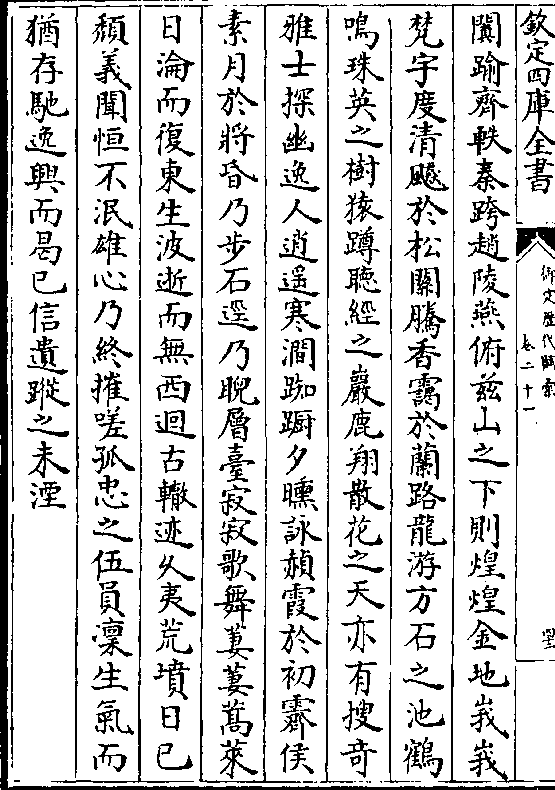 欽定四庫全書
御定歷代賦彙
卷二十一
闐踰齊軼秦跨趙陵燕俯兹山之下則煌煌金地峩峩
梵宇度清飈於松關騰香靄於蘭路龍游方石之池鶴
鳴珠英之樹猿蹲聽經之巖鹿翔散花之天亦有搜奇
雅士探幽逸人逍遥寒澗踟蹰夕曛詠頳霞於初霽俟
素月於將昏乃步石逕乃睨層臺寂寂歌舞萋萋蒿萊
日淪而復東生波逝而無西迴古轍迹久夷荒墳日已
頽義聞恒不泯雄心乃終摧嗟孤忠之伍員稟生氣而
猶存馳逸興而曷已信遺蹤之未湮